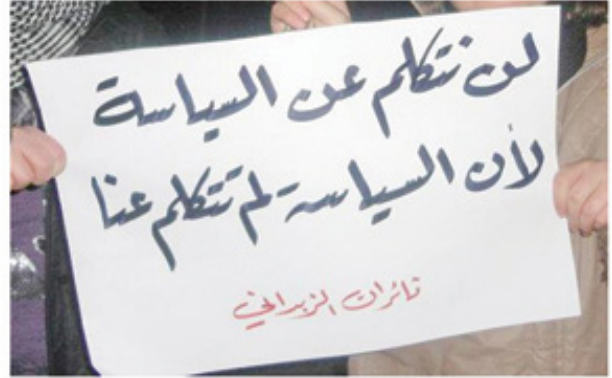 لن نتكلم عن السياسة
لأن السياسة لم تتكلم عنا
ثائرات الزبداني